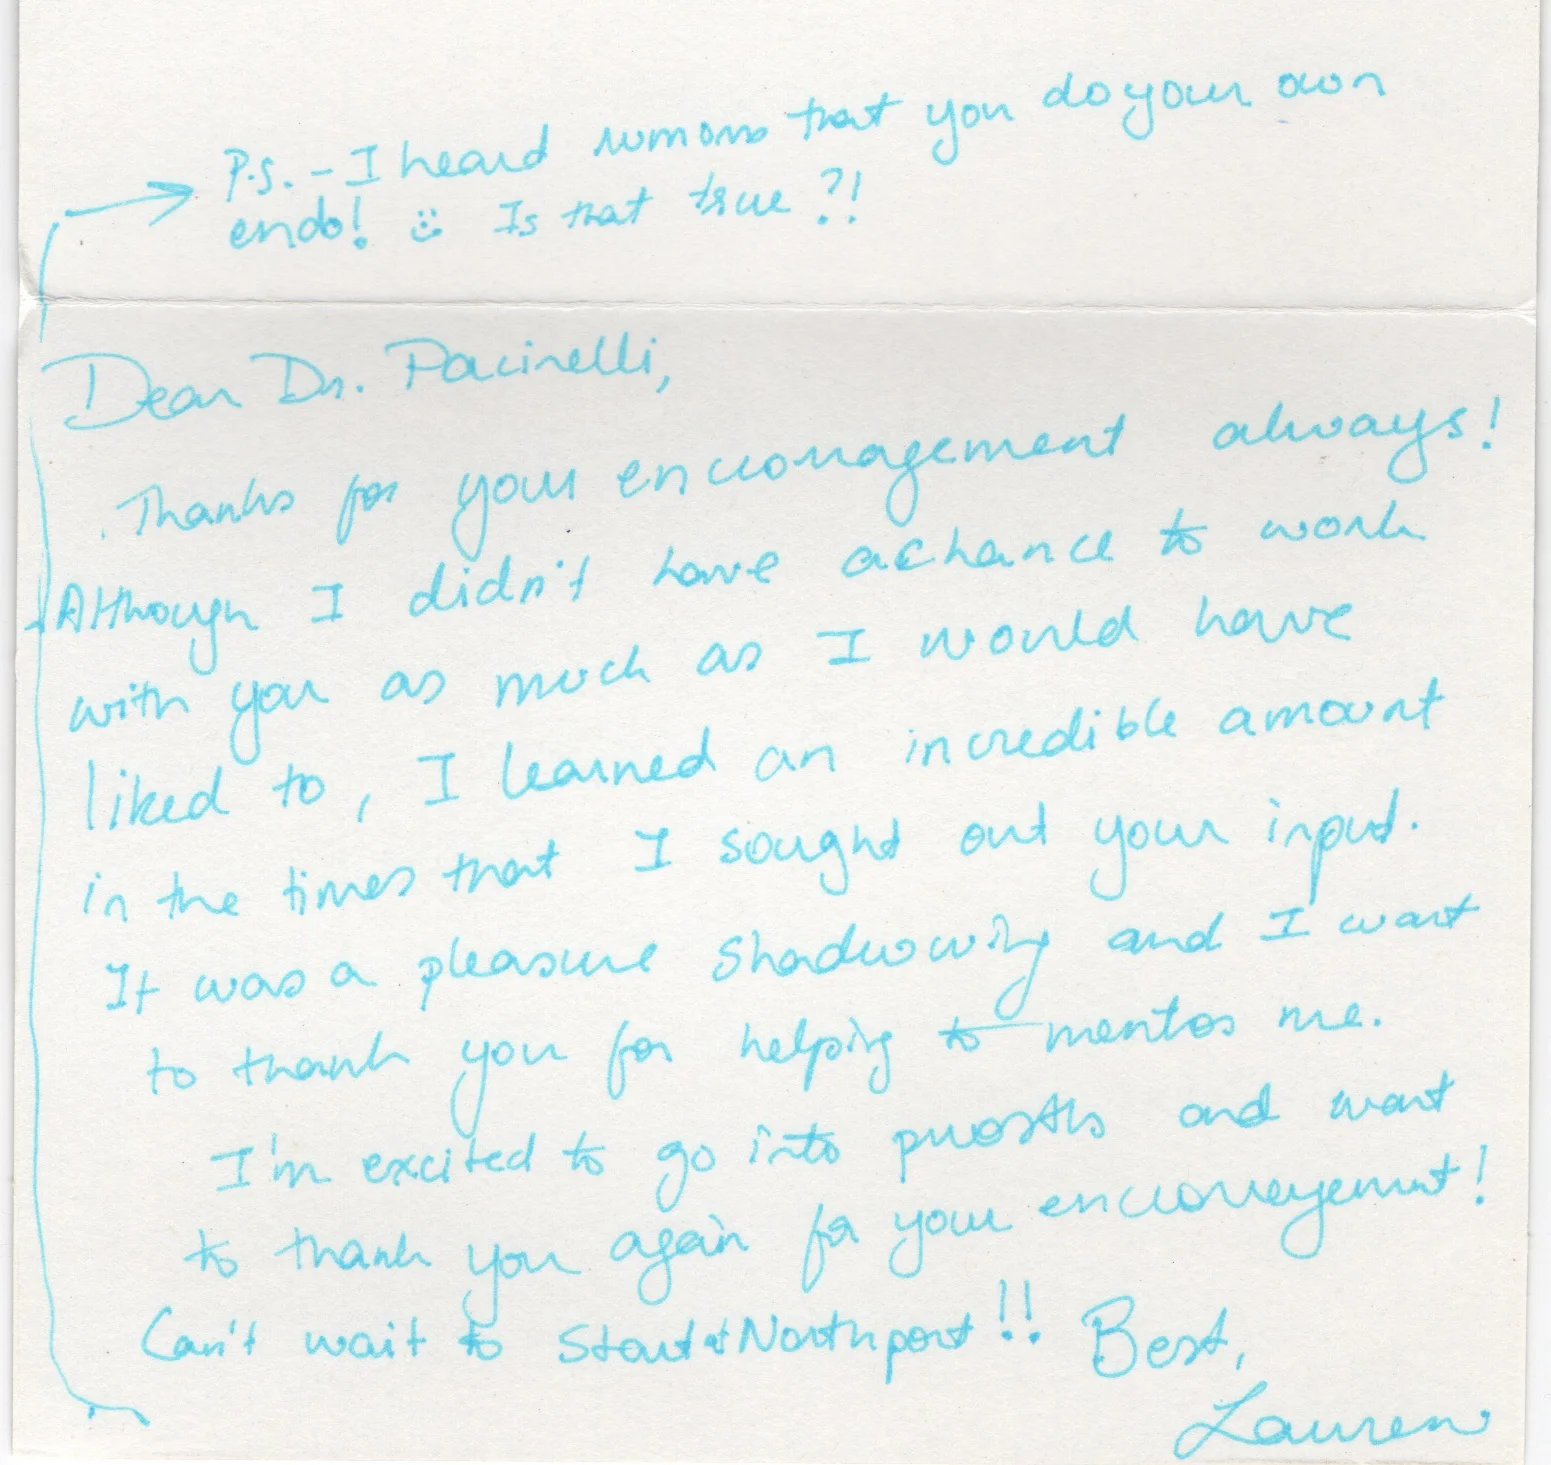 P.S. - I heard rumors that you do your own
endo! :) Is that true?!
Dear Dr. Pacinelli,
Thanks for your encouragement always!
Although I didn't have a chance to work
with you as much as I would have
liked to, I learned an incredible amount
in the times that I sought out your input.
It was a pleasure shadowing and I want
to thank you for helping to mentor me.
I'm excited to go into prosths and want
to thank you again for your encouragement!
Can't wait to start at Northport!! Best,
Lauren